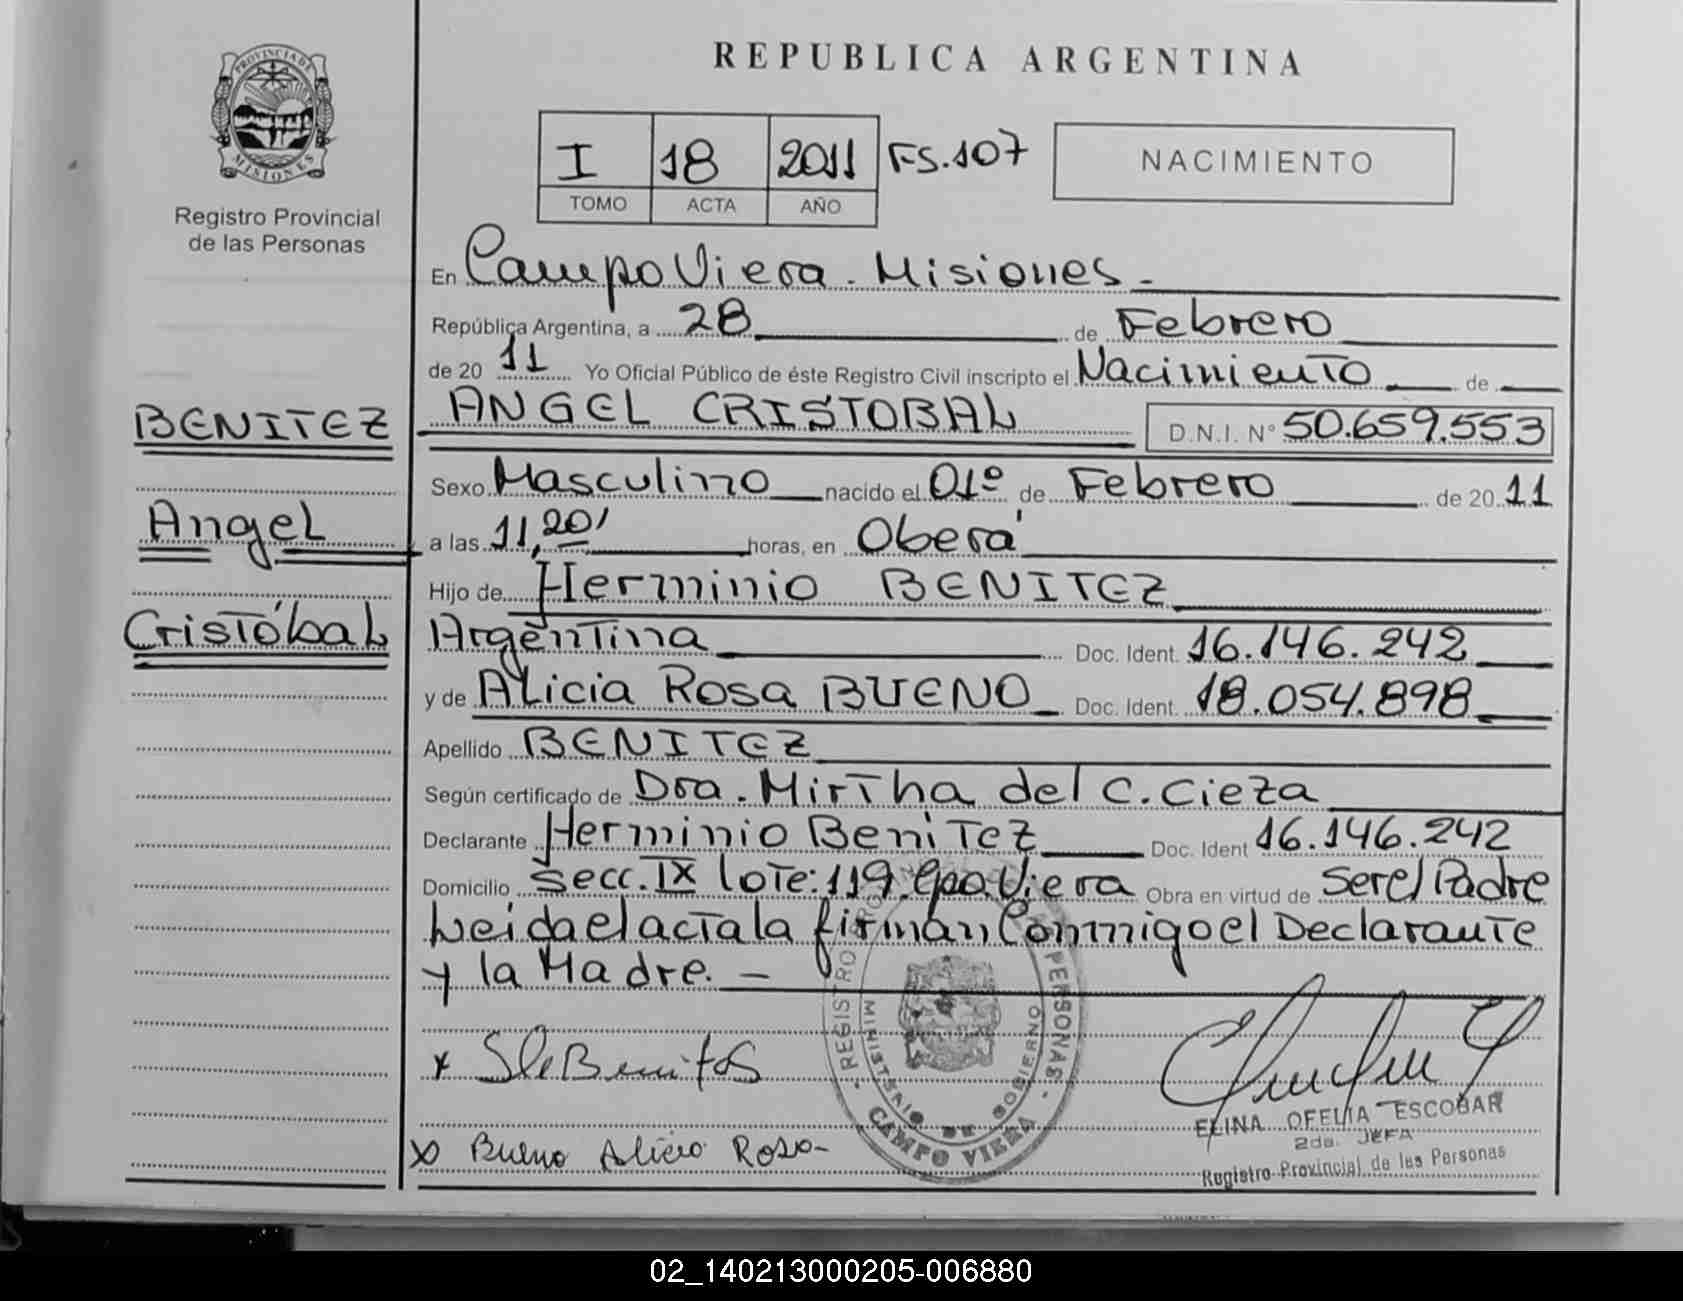 REPUBLICA ARGENTINA
PROVINCIA DE MISIONES
Registro Provincial
de las Personas
I 18 2011 FS.107
TOMO ACTA AÑO
NACIMIENTO
En Campo Viera - Misiones -
República Argentina, a 28 de Febrero
de 20 11 Yo Oficial Público de éste Registro Civil inscripto el Nacimiento de
BENITEZ
Angel
Cristóbal
ANGEL CRISTOBAL D.N.I. N° 50.659.553
Sexo Masculino nacido el 01º de Febrero de 20 11
a las 11,20' horas, en Oberá
Hijo de Herminio BENITEZ
Argentina Doc. Ident. 16.146.242
y de Alicia Rosa BUENO Doc. Ident. 18.054.898
Apellido BENITEZ
Según certificado de Dra. Mirtha del C. Cieza
Declarante Herminio Benitez Doc. Ident 16.146.242
Domicilio secc. IX lote: 119. Cpo Viera Obra en virtud de Ser el Padre
Leida el acta la firman Conmigo el Declarante
y la Madre. -
REGISTRO PERSONAS
MINISTERIO DE GOBIERNO
CAMPO VIERA
x Benitez
x Bueno Alicia Rosa -
ELINA OFELIA ESCOBAR
2da. JEFA
Registro Provincial de las Personas
02_140213000205-006880